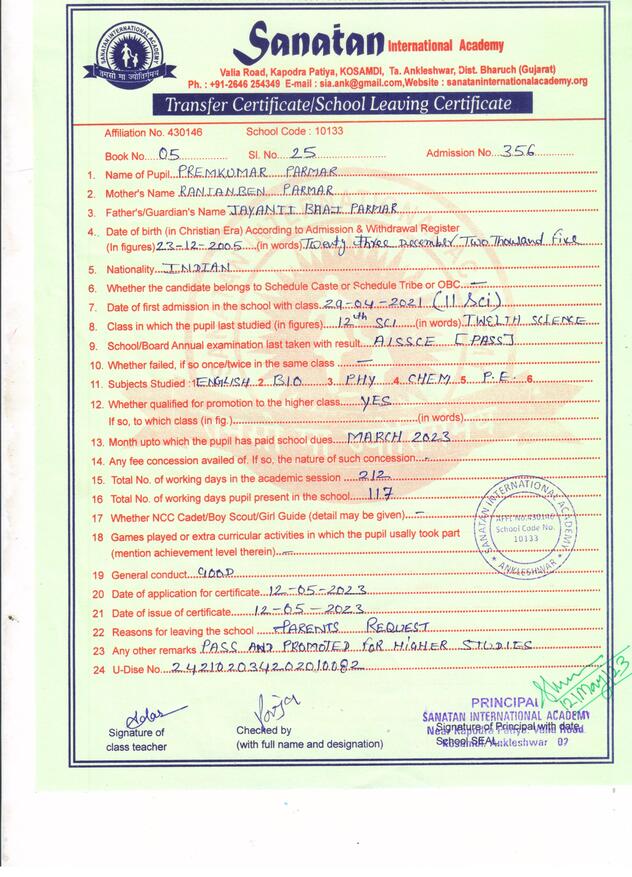 SANATAN INTERNATIONAL ACADEMY
तमसो मा ज्योतिर्गमय
Sanatan International Academy
Valia Road, Kapodra Patiya, KOSAMDI, Ta. Ankleshwar, Dist. Bharuch (Gujarat)
Ph. : +91-2646 254349 E-mail : sia.ank@gmail.com, Website : sanataninternationalacademy.org
Transfer Certificate/School Leaving Certificate
Affiliation No. 430146 School Code : 10133
Book No. 05 Sl. No. 25 Admission No. 356
1. Name of Pupil PREMKUMAR PARMAR
2. Mother's Name RANJANBEN PARMAR
3. Father's/Guardian's Name JAYANTI BHAI PARMAR
4. Date of birth (in Christian Era) According to Admission & Withdrawal Register
(In figures) 23-12-2005 (in words) Twenty three December Two Thousand Five
5. Nationality INDIAN
6. Whether the candidate belongs to Schedule Caste or Schedule Tribe or OBC —
7. Date of first admission in the school with class 29-04-2021 (11 Sci)
8. Class in which the pupil last studied (in figures) 12th SCI (in words) TWELTH SCIENCE
9. School/Board Annual examination last taken with result AISSCE [PASS]
10. Whether failed, if so once/twice in the same class —
11. Subjects Studied : 1 ENGLISH 2. BIO 3. PHY 4. CHEM 5. P.E. 6.
12. Whether qualified for promotion to the higher class YES
If so, to which class (in fig.) (in words)
13. Month upto which the pupil has paid school dues. MARCH 2023
14. Any fee concession availed of. If so, the nature of such concession -
15. Total No. of working days in the academic session 212
16 Total No. of working days pupil present in the school 117
17 Whether NCC Cadet/Boy Scout/Girl Guide (detail may be given) —
18 Games played or extra curricular activities in which the pupil usally took part
(mention achievement level therein) —
19 General conduct GOOD
20 Date of application for certificate 12-05-2023
21 Date of issue of certificate 12-05-2023
22 Reasons for leaving the school PARENTS REQUEST
23 Any other remarks PASS AND PROMOTED FOR HIGHER STUDIES
24 U-Dise No. 242102034202010082
SANATAN INTERNATIONAL ACADEMY
AFFI. No.430146
School Code No.
10133
* ANKLESHWAR *
12/May/23
PRINCIPAL
SANATAN INTERNATIONAL ACADEMY
Near Kapodra Patiya, Valia Road
Ankleshwar 02
Signature of
class teacher
Pooja
Checked by
(with full name and designation)
Signature of Principal with date
School SEAL